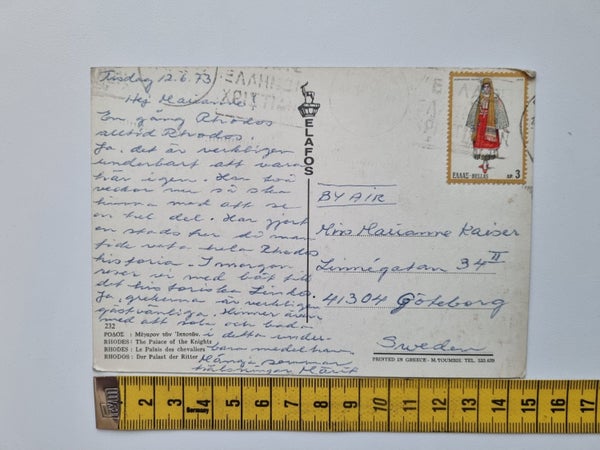 Tisdag 12.6.73
Hej Marianne
En gång Rhodos
alltid Rhodos.
Ja, det är verkligen
underbart att vara
här igen. Har två
veckor nu så ska
hinna med att se
en hel del. Har gjort
en stads där
hela Rhodos
historia. I morgon
reser vi med båt till
det historiska Lindos.
Ja, grekerna är verkligen
gästvänliga. Hinner även
med att sola och bada
i detta under-
bara medelhav.
Många sommar
hälsningar Marit
232
ΡΟΔΟΣ: Μέγαρον τῶν Ἱπποτῶν
RHODES: The Palace of the Knights
RHODES: Le Palais des chevaliers
RHODOS: Der Palast der Ritter
ELAFOS
ΕΛΛΗΝΙΚ
ΕΛΛΑΣ-HELLAS ΔΡ 3
BY AIR
Miss Marianne Kaiser
Linnégatan 34 II
41304 Göteborg
Sweden
PRINTED IN GREECE - M. TOUMBIS. TEL. 523.670
2 3 4 Germany 5 6 7 8 9 10 11 12 13 14 15 16 17